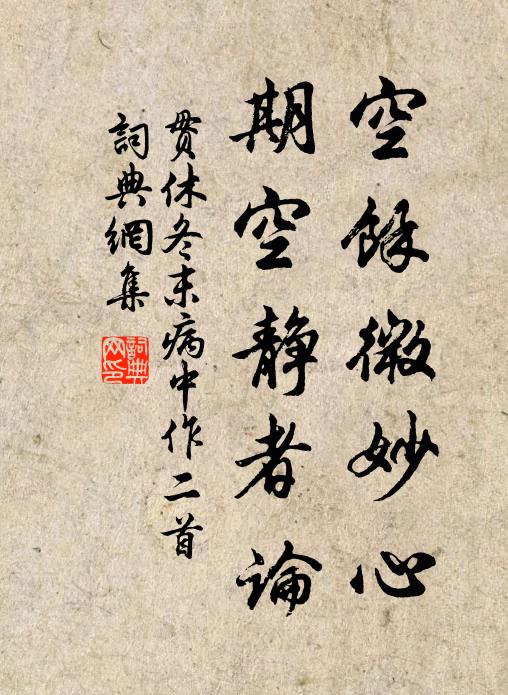 空餘微妙心
期空静者論
貫休冬末病中作二首
詞典網集
詞典網印